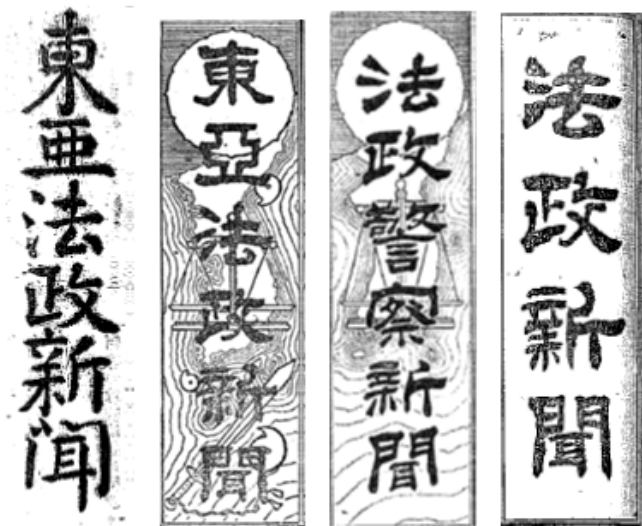 東亜法政新聞
東亞法政新聞
法政警察新聞
法政新聞